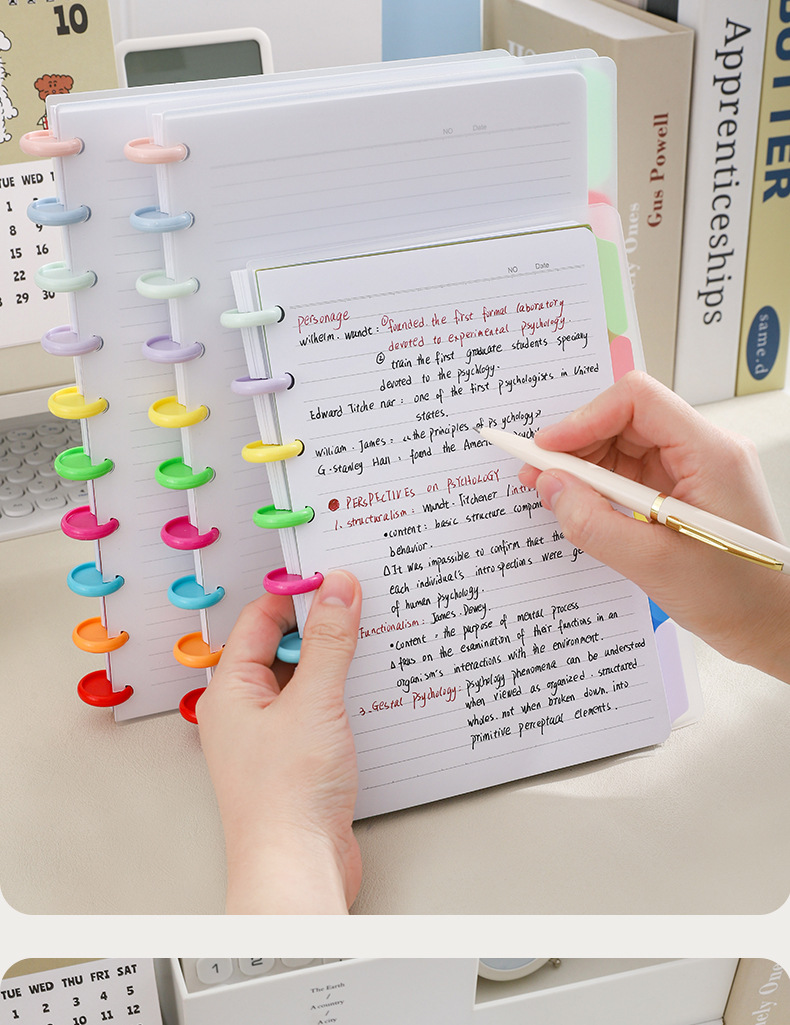 10
TUE WED
1
8 9
15 16
22
29 30
NO Date
NO Date
Personage
wilhelm. wundt: ① founded. the first formal laboratory
devoted to experimental psychology.
② train the first graduate students specialy
devoted to the psychlogy.
Edward Titche nar: one of the first psychologists in United
States.
william. James: "the principles of Ps ychology»
G. stanley Hall: found the Americ
PERSPECTIVES on PSYCHOLOGY
1. structuralism: Wundt. Titchener
• content: basic structure compon
behavior.
△ It was impassible to confirm that the
each individual's introspections were ge
of human psychology.
Functionalism: James. Dewey.
• content: the purpose of mental process
△ foas on the examination of their functions in an
organism's interactions with the environment.
3. Gestal psychology: psychology phenomena can be understood
when viewed as organized. structured
wholes. not when broken down. into
primitive perceptual elements.
Gus Powell
ely Ones
Apprenticeships
OTTER
same.d
TUE WED THU FRI SAT
1 2 3 4 5
8 9 10 11 12
1 2
The Earth
/
A country
/
A city
ly One